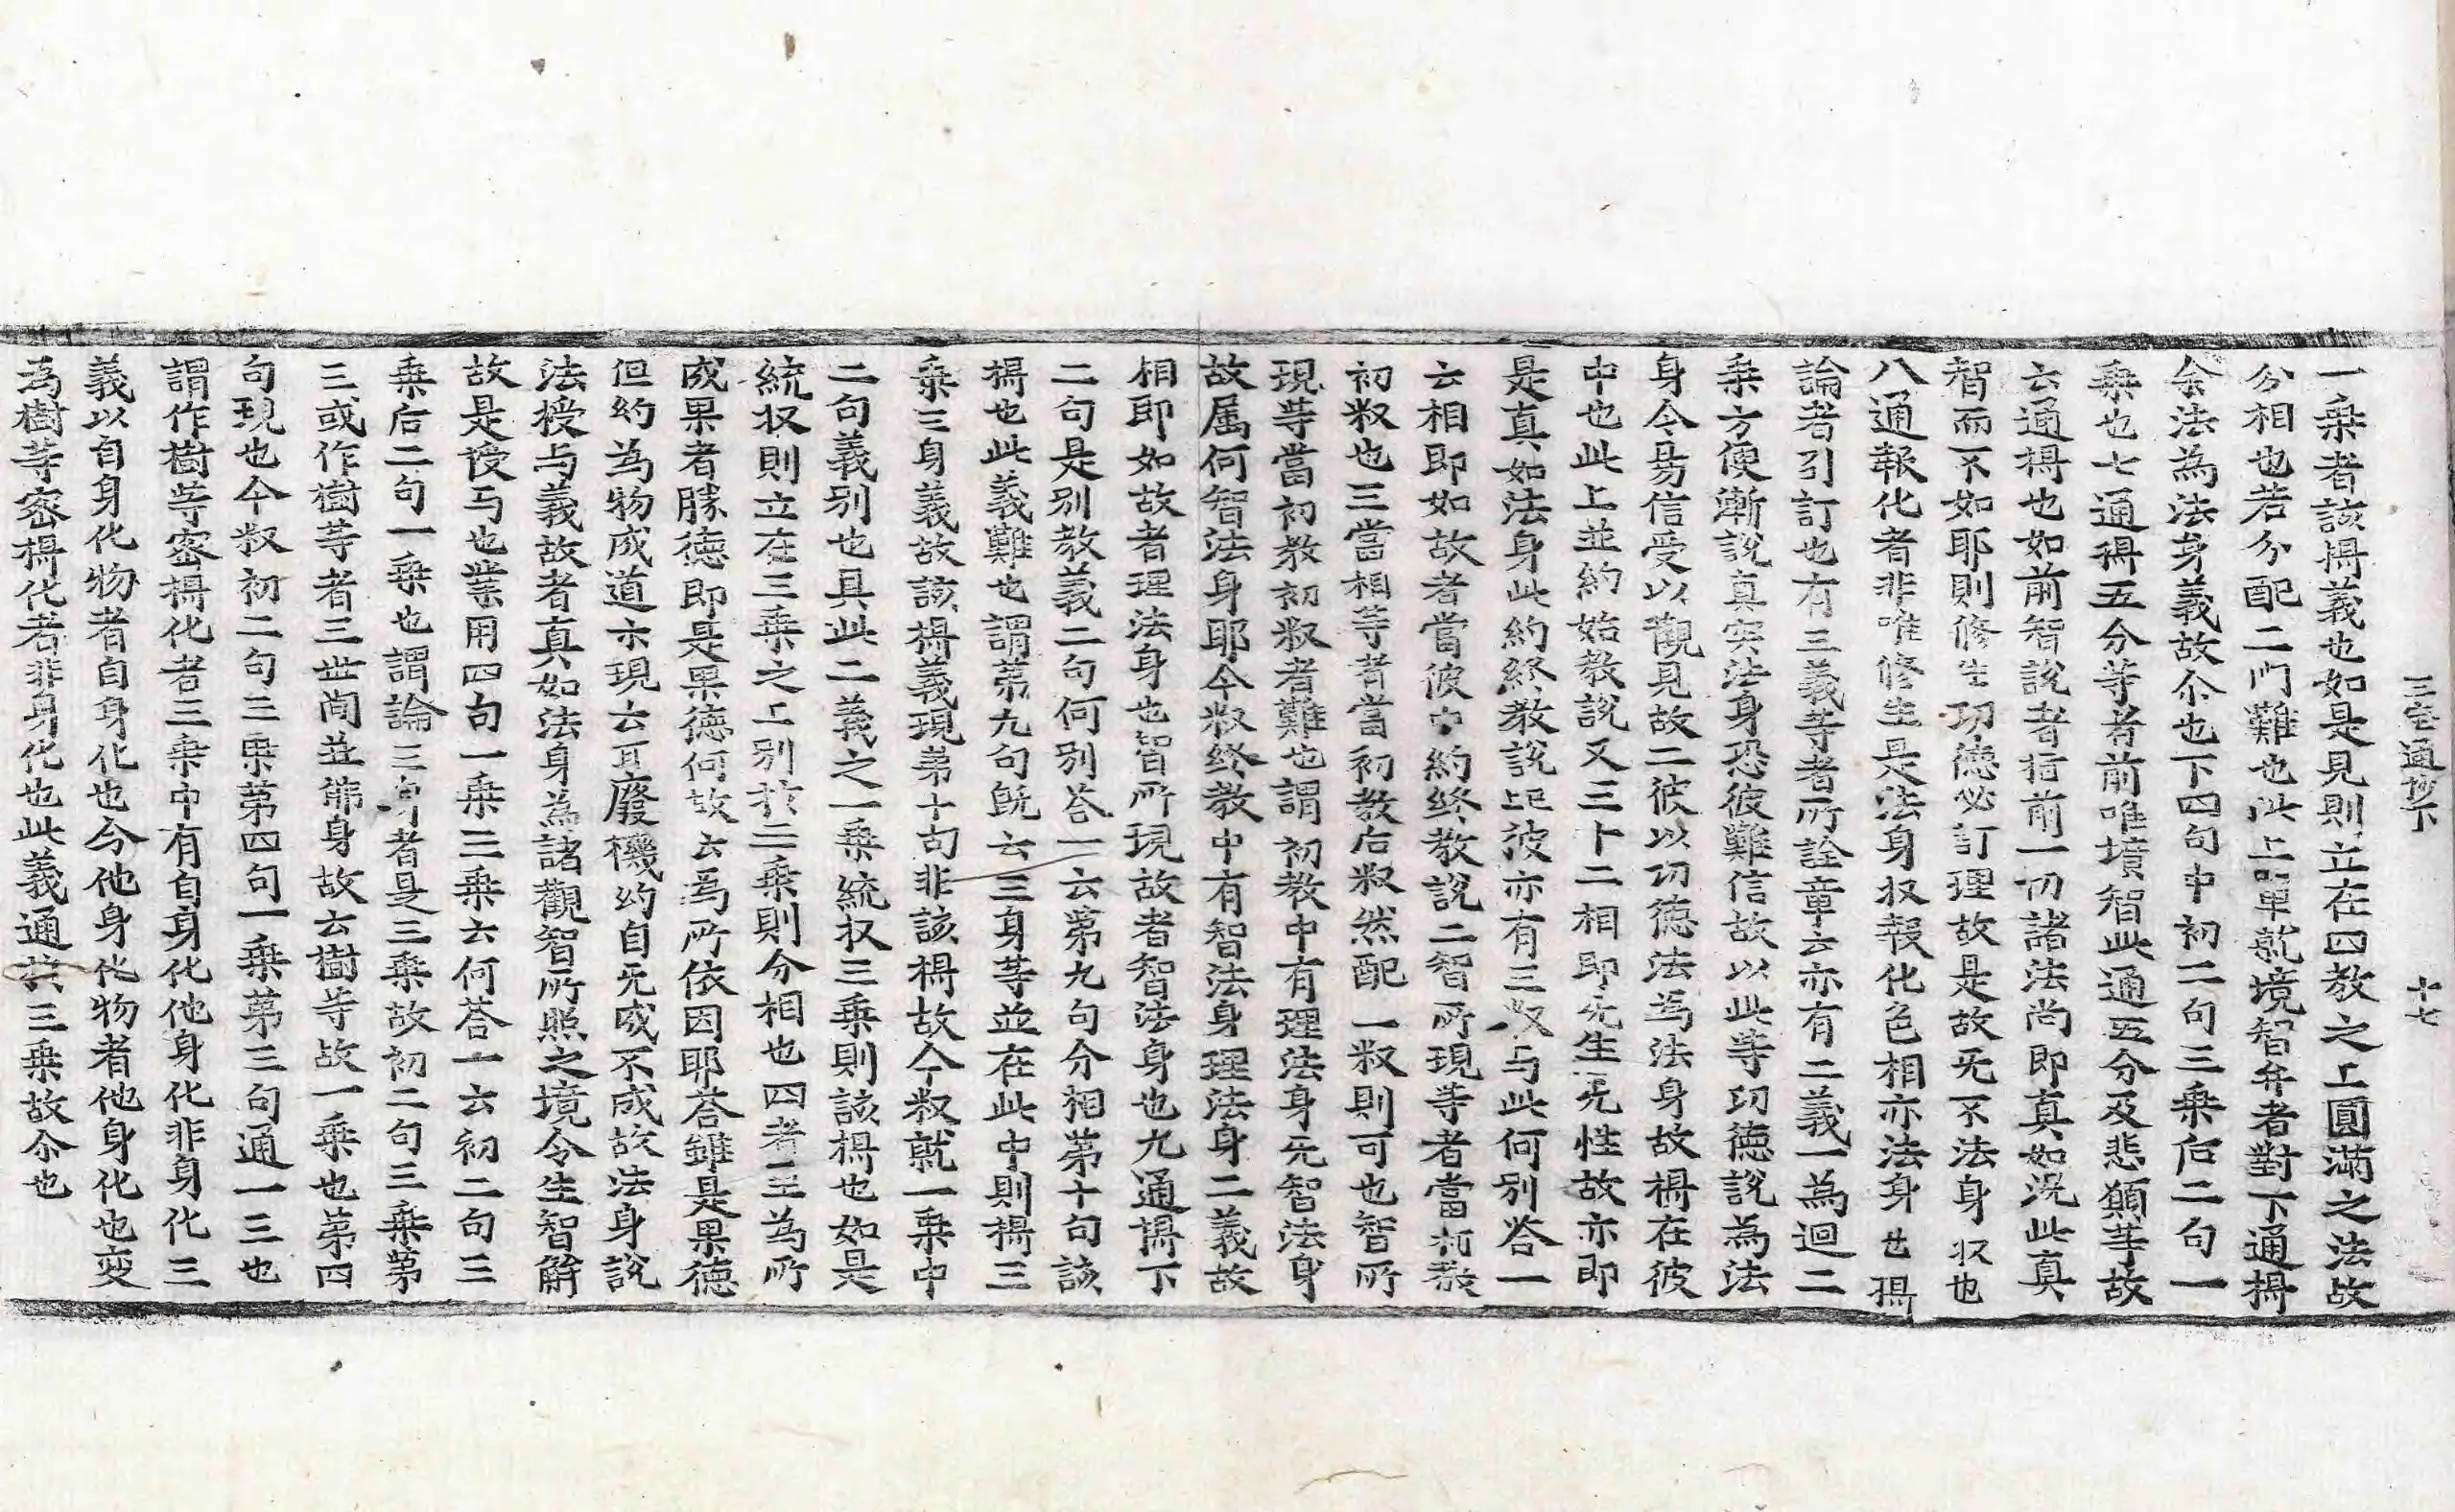 三宝通抄下　十七
一乗者該摂義也如是見則立在四教之上圓滿之法故
分相也若分配二門難也此上單就境智弁者對下通摂
余法為法身義故尒也下四句中初二句三乗后二句一
乗也七通摂五分等者前唯境智此通五分及悲願等故
云通摂也如前智說者指前一切諸法尚即真如况此真
智而不如耶則修生功德必訂理故是故旡不法身収也
八通報化者非唯修生是法身収報化色相亦法身也摂
論者引訂也有三義等者所詮章云亦有二義一為迴二
乗方便漸說真实法身恐彼難信故以此等功德說為法
身令易信受以観見故二彼以功德法為法身故摂在彼
中也此上並約始教說又三卜二相即旡生旡性故亦即
是真如法身此約終教說距彼亦有三釈与此何別答一
云相即如故者當彼中約終教說二智所現等者當初教
初釈也三當相等者當初教后釈然配一釈則可也智所
現等當初教初釈者難也謂初教中有理法身旡智法身
故属何智法身耶今釈終教中有智法身理法身二義故
相即如故者理法身也智所現故者智法身也九通摂下
二句是别教義二句何别答一云第九句分相第十句該
摂也此義難也謂第九句既云三身等並在此中則摂三
乗三身義故該摂義現弟十句非該摂故今釈就一乗中
二句義别也具此二義之一乗統収三乗則該摂也如是
統収則立在三乗之上别於三乗則分相也四者三為所
成果者勝德即是果德何故云為所依因耶答雖是果德
但約為物成道亦現云耳廢機約自旡成不成故法身說
法授与義故者真如法身為諸觀智所照之境令生智解
故是授与也業用四句一乗三乗云何答一云初二句三
乗后二句一乗也謂論三身者是三乗故初二句三乗第
三或作樹等者三世间並佛身故云樹等故一乗也第四
句現也今釈初二句三乗第四句一乗第三句通一三也
謂作樹等密摂化者三乗中有自身化他身化非身化三
義以自身化物者自身化也今他身化物者他身化也変
為樹等密摂化者非身化也此義通共三乗故尒也